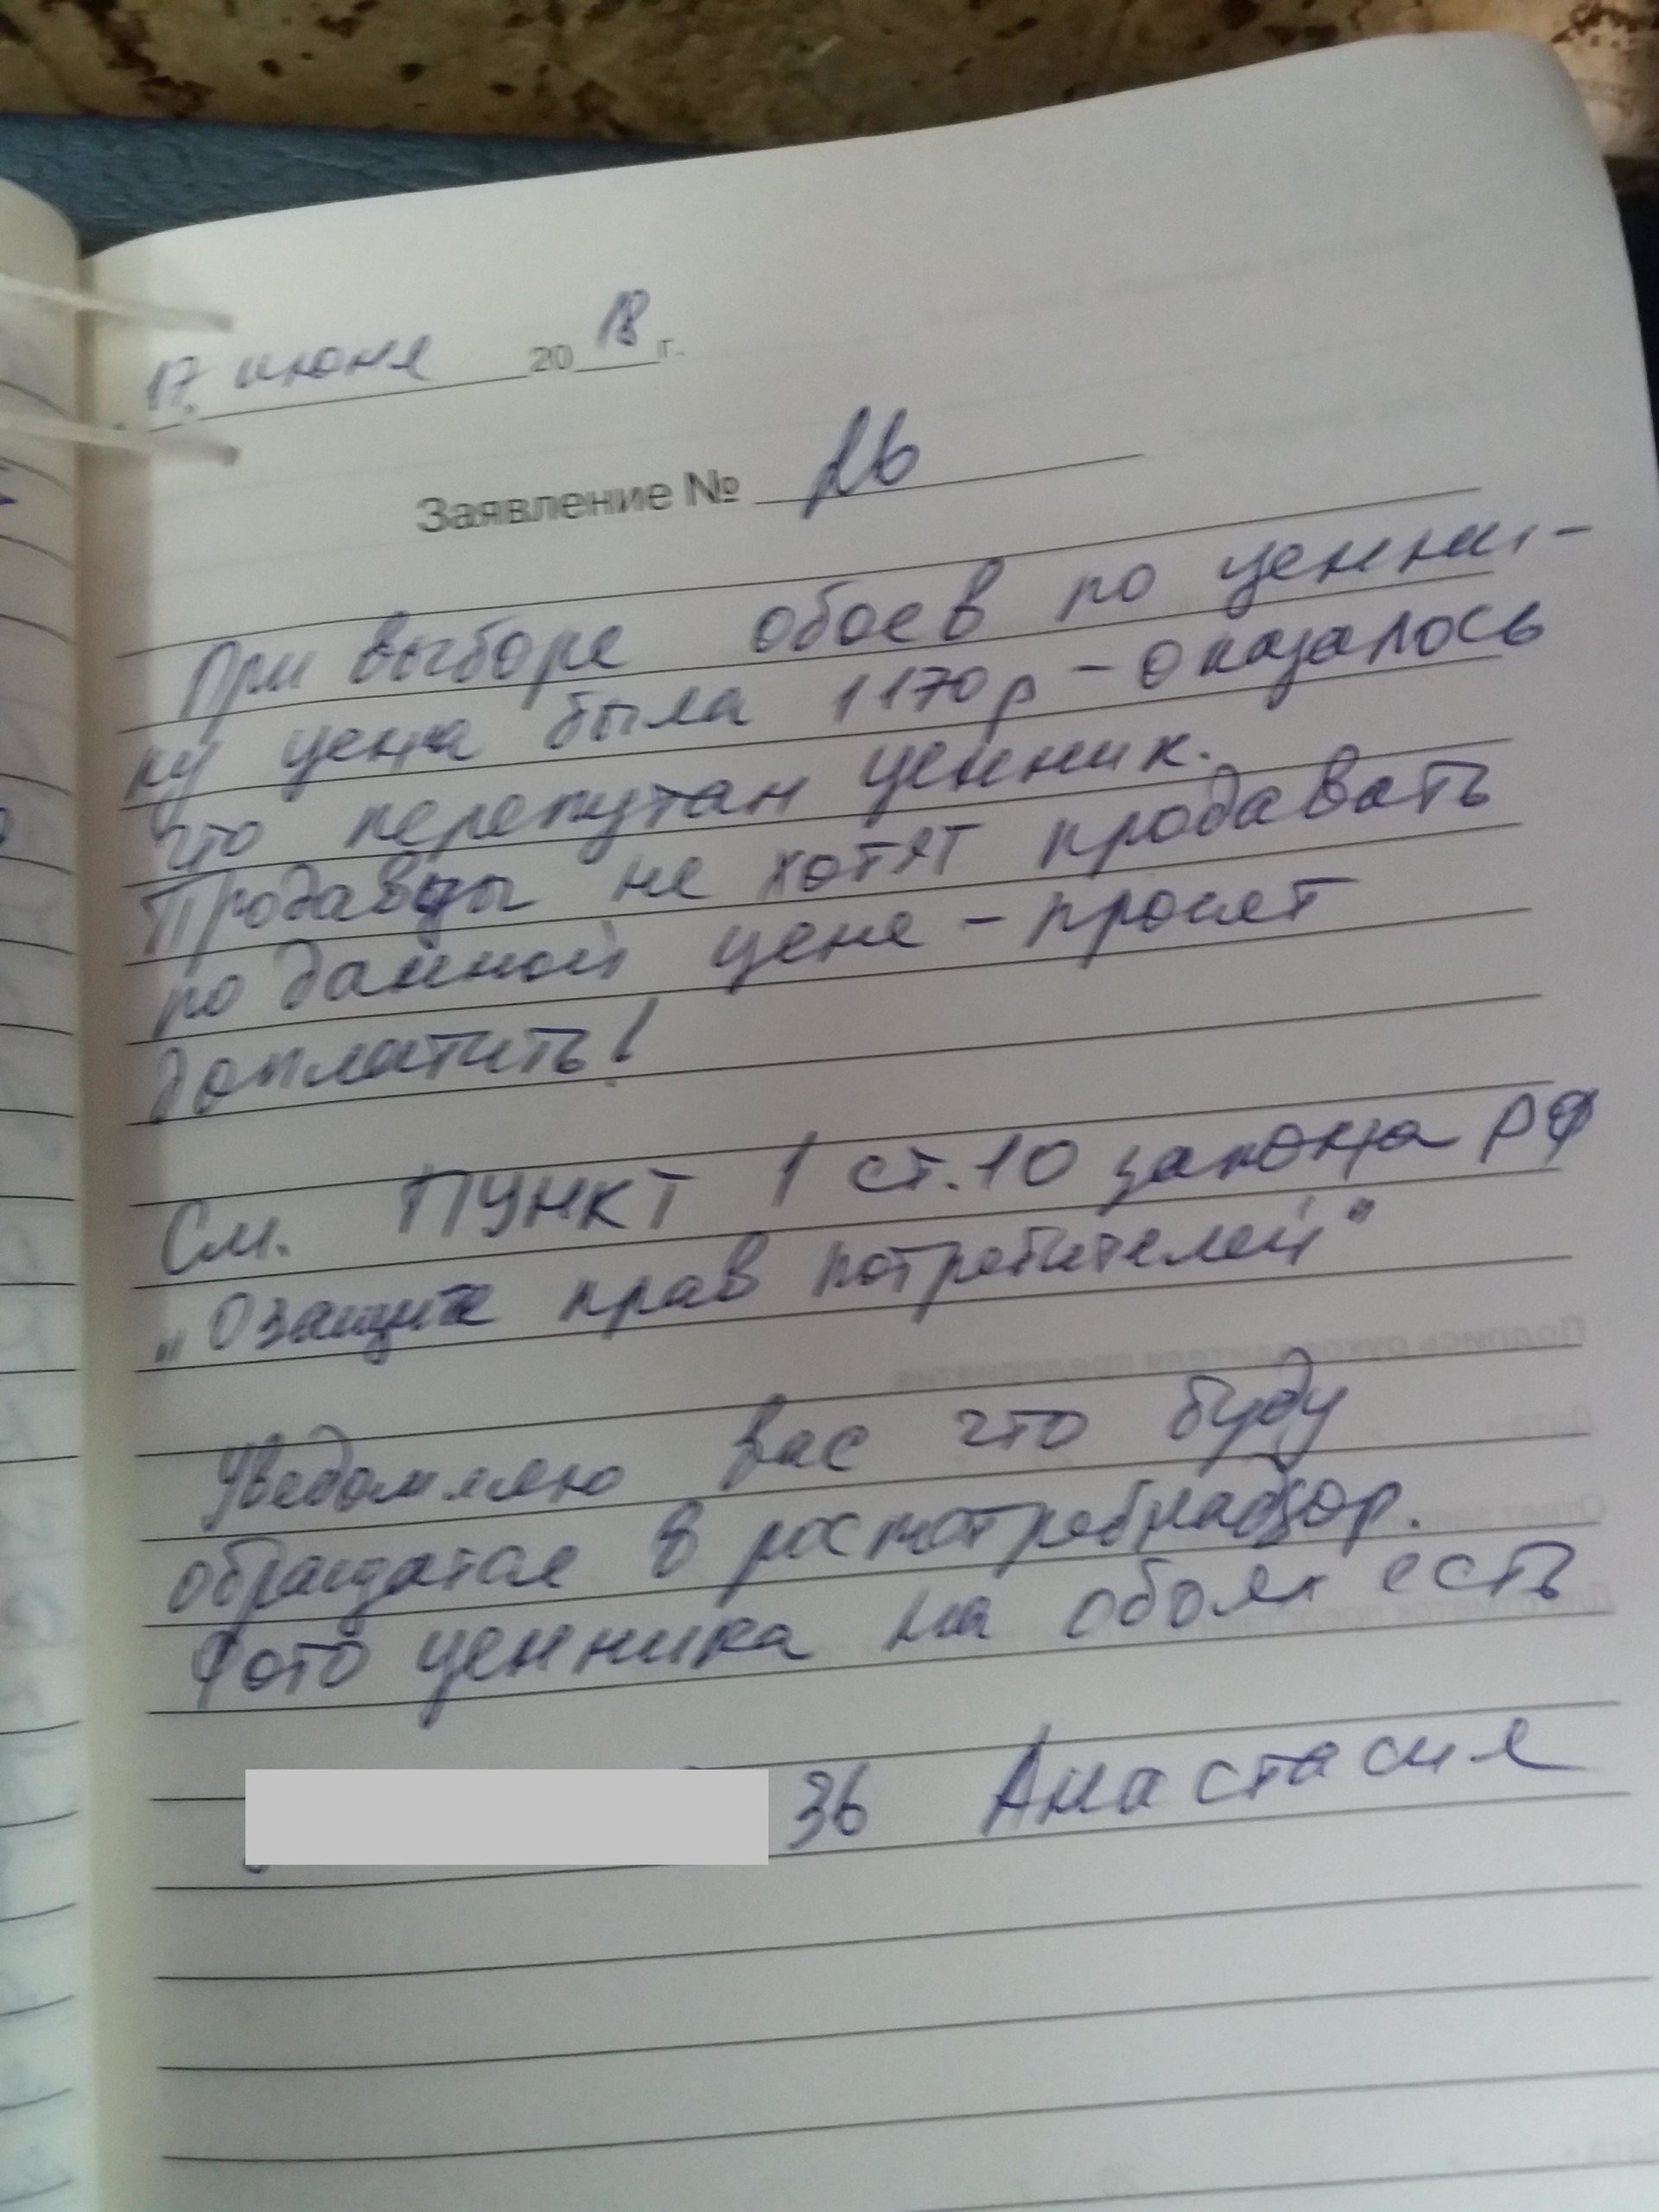 17 июня 2018 г.
Заявление № 26
При выборе обоев по ценни-
ку цена была 1170р - оказалось
что перепутан ценник.
Продавцы не хотят продавать
по данной цене - просят
доплатить!
См. пункт 1 ст.10 закона РФ
„О защите прав потребителей"
Уведомляю вас что буду
обращатся в роспотребнадзор.
Фото ценника на обоях есть
36 Анастасия